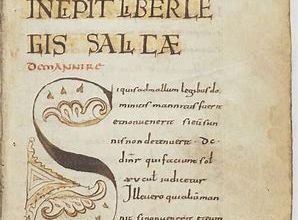 INCIPIT LIBER LE
GIS SALICÆ
DE MANNIRE
Si quis ad mallum legibus do
minus mannitus fuerit
et non venerit si eum sun
nis non detenuerit · de
dinr̄ qui faciunt sol
xv cul iudicetur
Ille vero qui alium man
nit si non venerit et eum